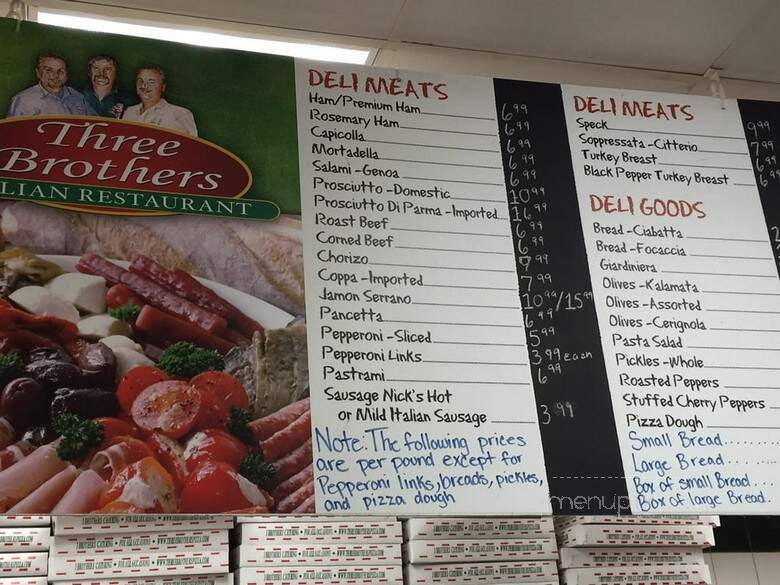 Three
Brothers
LIAN RESTAURANT
DELI MEATS
Ham/Premium Ham 6.99
Rosemary Ham 6.99
Capicolla 6.99
Mortadella 6.99
Salami -Genoa 6.99
Prosciutto -Domestic 10.99
Prosciutto Di Parma -Imported 16.99
Roast Beef 6.99
Corned Beef 6.99
Chorizo 7.99
Coppa -Imported 7.99
Jamon Serrano 10.99/15.99
Pancetta 6.99
Pepperoni -Sliced 5.99
Pepperoni Links 3.99 each
Pastrami 6.99
Sausage Nick's Hot
or Mild Italian Sausage 3.99
Note: The following prices
are per pound except for
Pepperoni links, breads, pickles,
and pizza dough
DELI MEATS
Speck 9.99
Soppressata -Citterio 7.99
Turkey Breast 6.99
Black Pepper Turkey Breast 6.99
DELI GOODS
Bread -Ciabatta
Bread -Focaccia
Giardiniera
Olives -Kalamata
Olives -Assorted
Olives -Cerignola
Pasta Salad
Pickles -Whole
Roasted Peppers
Stuffed Cherry Peppers
Pizza Dough
Small Bread.......
Large Bread.....
Box of small Bread....
Box of large Bread.
menup